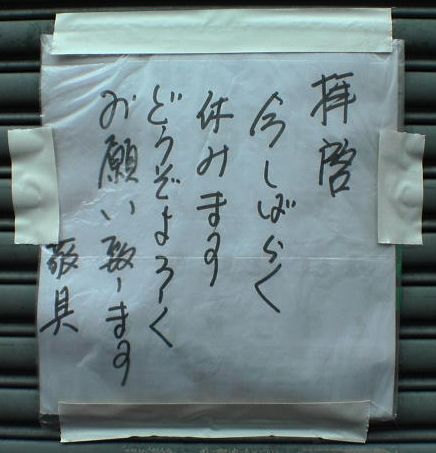 拝啓
今しばらく
休みます
どうぞよろしく
お願い致します
敬具